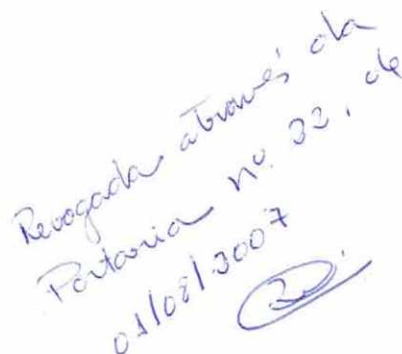 Revogada através da
Portaria nº 32, de
01/08/2007